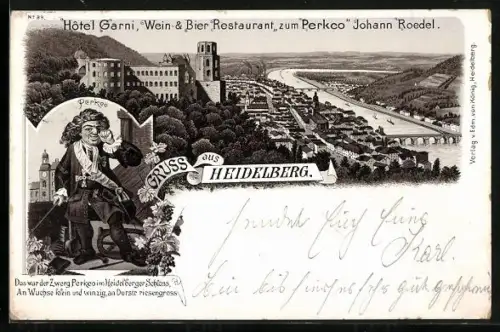 No 36
"Hôtel Garni," Wein- & Bier "Restaurant," zum "Perkeo" Johann Roedel.
Verlag v. Edm. von König, Heidelberg.
Perkeo
GRUSS aus HEIDELBERG.
sendet Euch Euer
Karl.
bis
gut
Das war der Zwerg Perkeo im Heidelberger Schloss,
An Wuchse klein und winzig, an Durste riesengross.